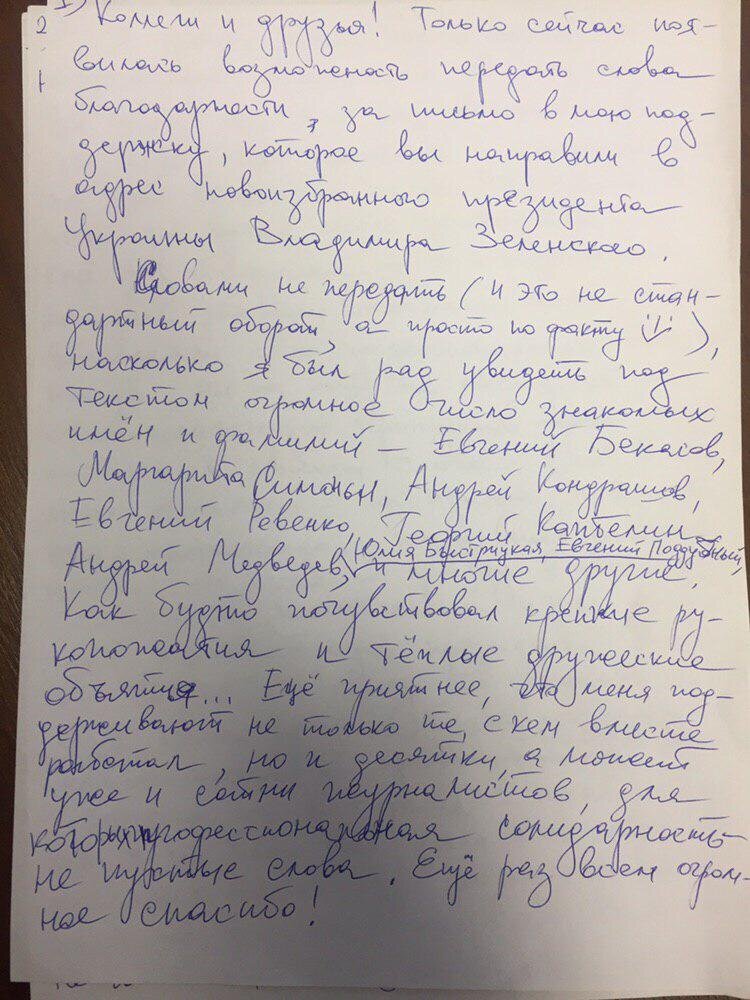 1) Коллеги и друзья! Только сейчас поя-
2
вилась возможность передать слова
1
благодарности, за письмо в мою под-
держку, которое вы направили в
адрес новоизбранного президента
Украины Владимира Зеленского.
Словами не передать (и это не стан-
дартный оборот, а просто по факту ),
насколько я был рад увидеть под
текстом огромное число знакомых
имён и фамилий – Евгений Бекасов,
Маргарита Симоньян, Андрей Кондрашов,
Евгений Ревенко, Георгий Капбелин
Юлия Быстрицкая, Евгений Поддубный,
Андрей Медведев, и многие другие.
Как будто почувствовал крепкие ру-
копожатия и тёплые дружеские
объятия... Ещё приятнее, что меня под-
держивают не только те, с кем вместе
работал, но и десятки, а может
уже и сотни журналистов, для
которых профессиональная солидарность
не пустые слова. Ещё раз всем огром-
ное спасибо!